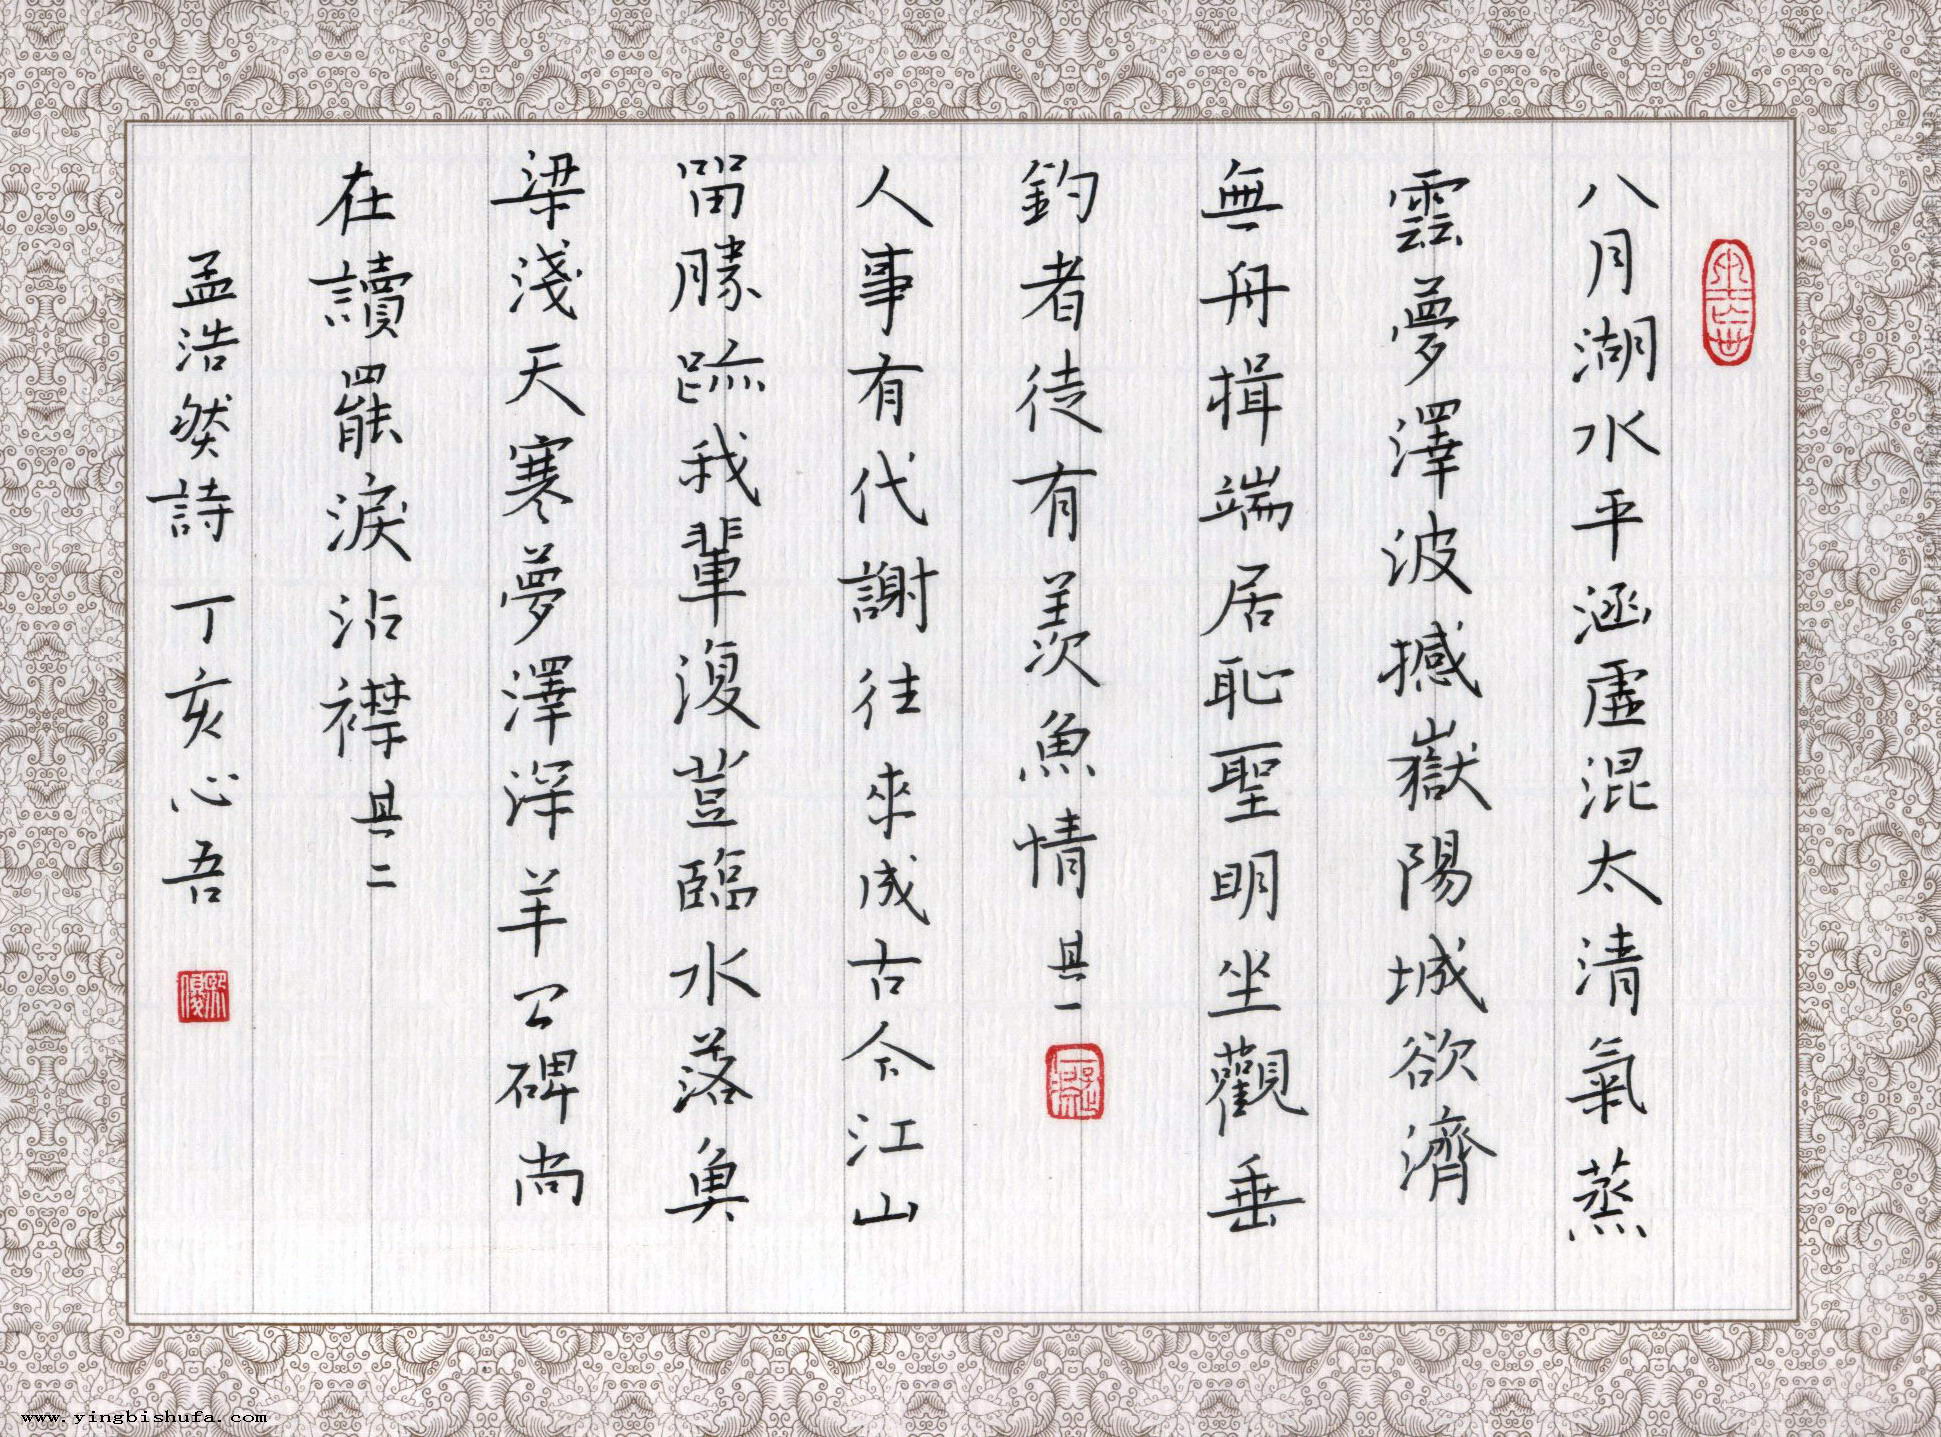 八月湖水平涵虛混太清氣蒸
雲夢澤波撼嶽陽城欲濟
無舟楫端居恥聖明坐觀垂
釣者徒有羨魚情其一
人事有代謝往來成古今江山
留勝跡我輩復登臨水落魚
梁淺天寒夢澤深羊公碑尚
在讀罷淚沾襟其二
孟浩然詩丁亥心吾
www.yingbishufa.com